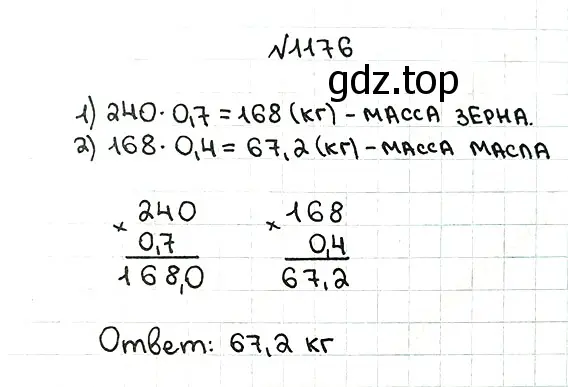 №1176
gdz.top
1) 240 · 0,7 = 168 (кг) – МАССА ЗЕРНА.
2) 168 · 0,4 = 67,2 (кг) – МАССА МАСЛА
× 240
0,7
168,0
× 168
0,4
67,2
Ответ: 67,2 кг